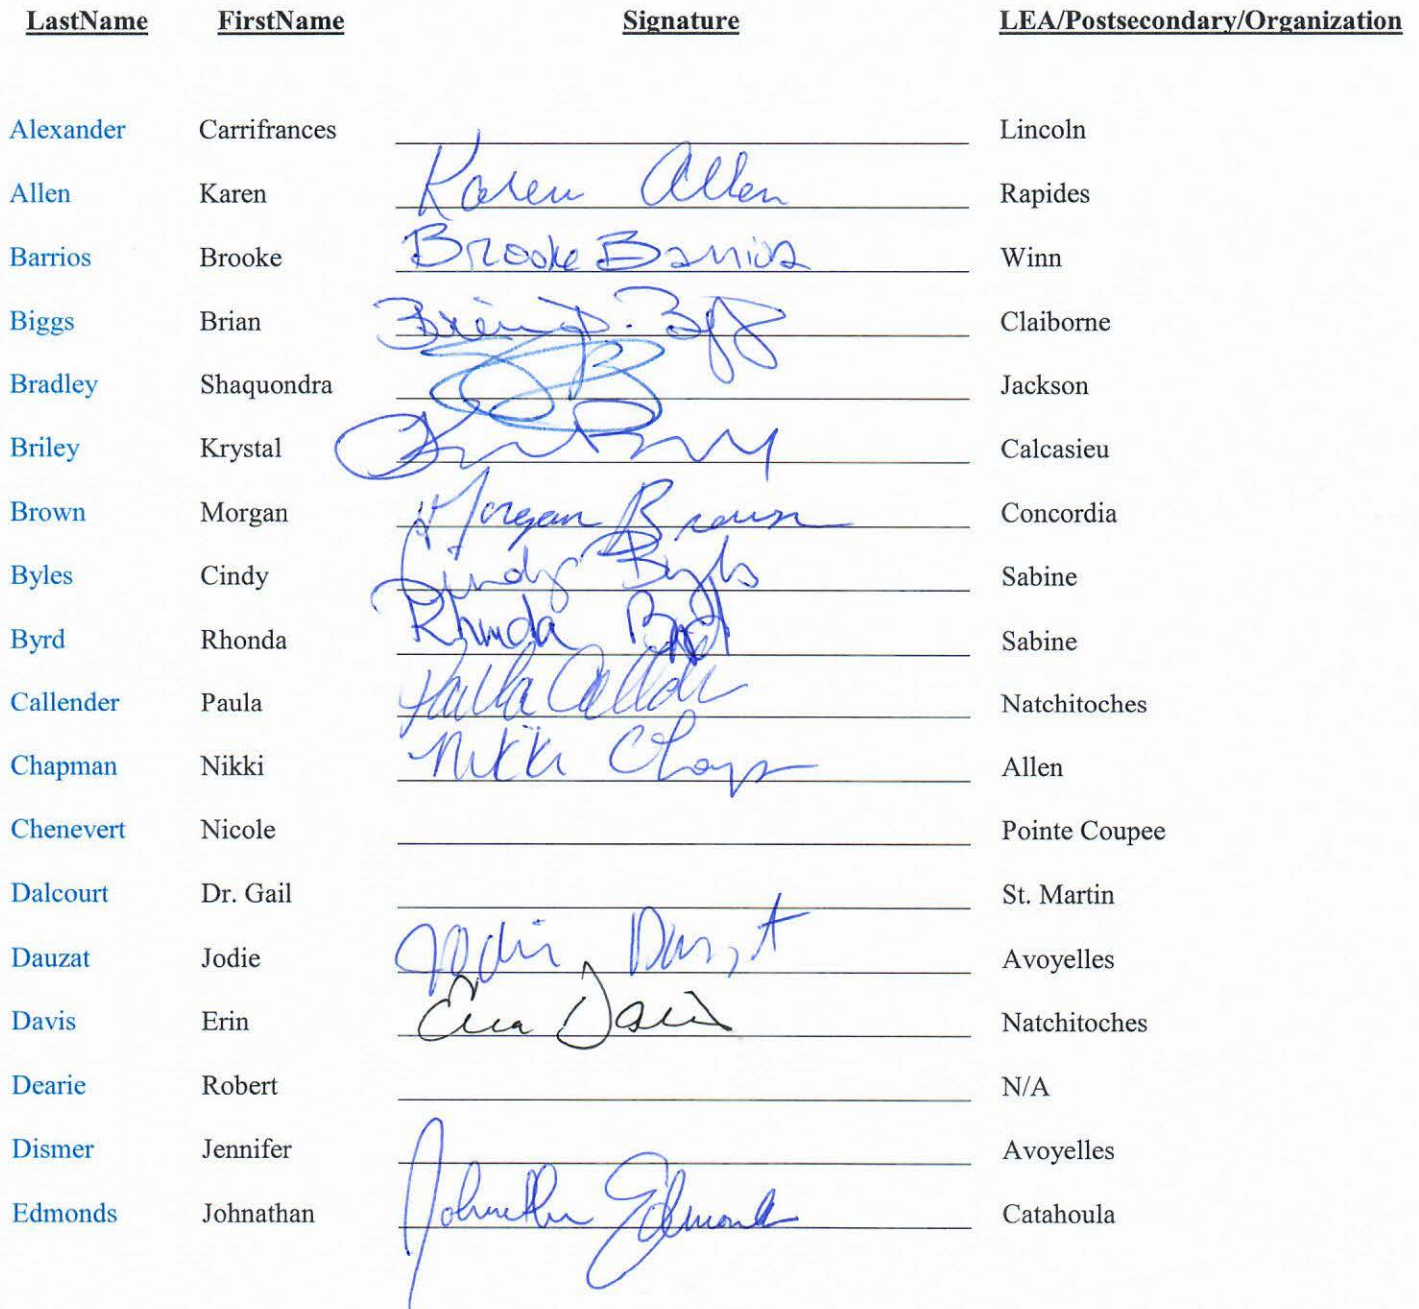 LastName FirstName Signature LEA/Postsecondary/Organization
Alexander Carrifrances Lincoln
Allen Karen Karen Allen Rapides
Barrios Brooke Brooke Barrios Winn
Biggs Brian Claiborne
Bradley Shaquondra Jackson
Briley Krystal Calcasieu
Brown Morgan Morgan Brown Concordia
Byles Cindy Cindy Byles Sabine
Byrd Rhonda Rhonda Byrd Sabine
Callender Paula Paula Natchitoches
Chapman Nikki Nikki Allen
Chenevert Nicole Pointe Coupee
Dalcourt Dr. Gail St. Martin
Dauzat Jodie Jodie Dauzat Avoyelles
Davis Erin Erin Davis Natchitoches
Dearie Robert N/A
Dismer Jennifer Avoyelles
Edmonds Johnathan Johnathan Edmonds Catahoula